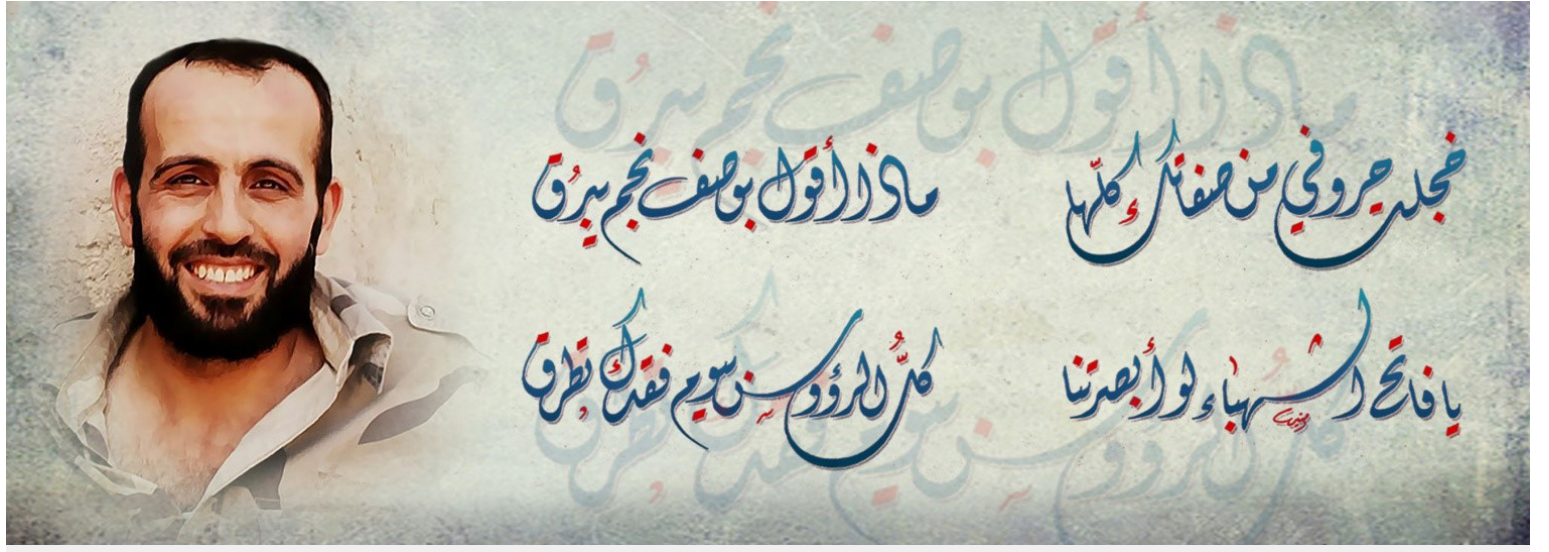 خجلت حروفي من صفاتك كلّها ماذا أقول بوصف نجم يبرُق
يا فاتح الشهباء لو أبصرتنا كلُّ الرؤوس بيوم فقدك تطرق